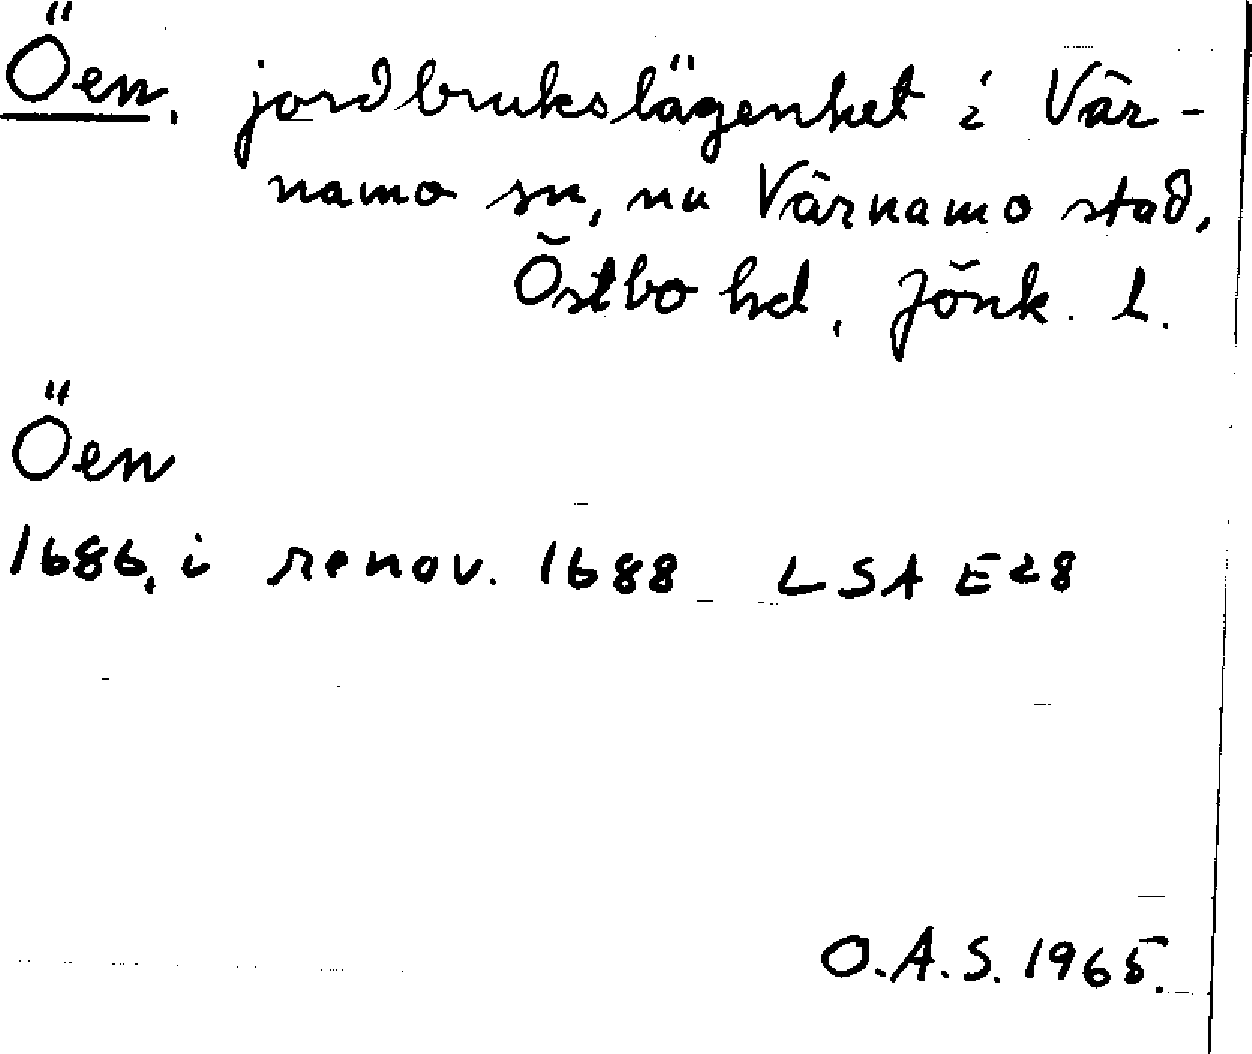 Öen, jordbrukslägenhet i Vär-
namo sn, nu Värnamo stad,
Östbo hd, Jönk. l.
Öen
1686, i renov. 1688 LSA E28
O.A.S. 1965.